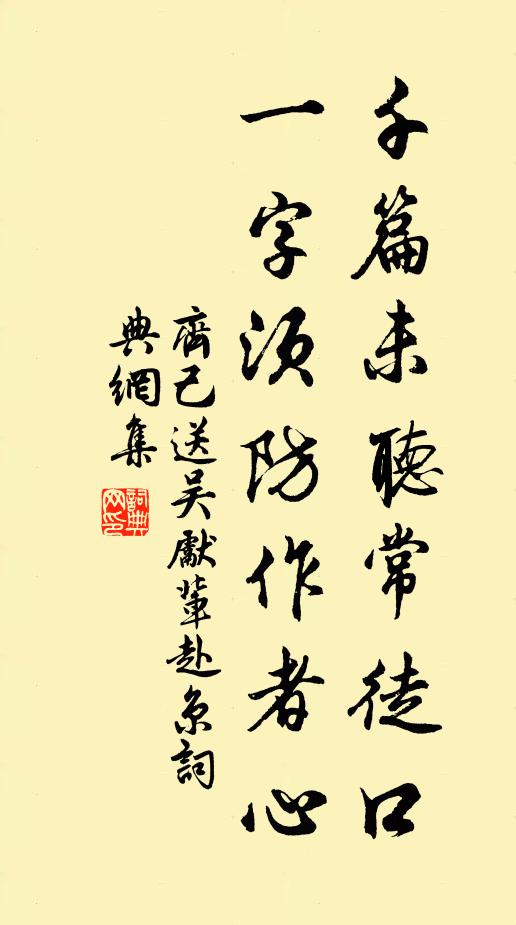 千篇未聽常徒口
一字須防作者心
齊己送吳獻輩赴京詞
典網集
詞典
网印